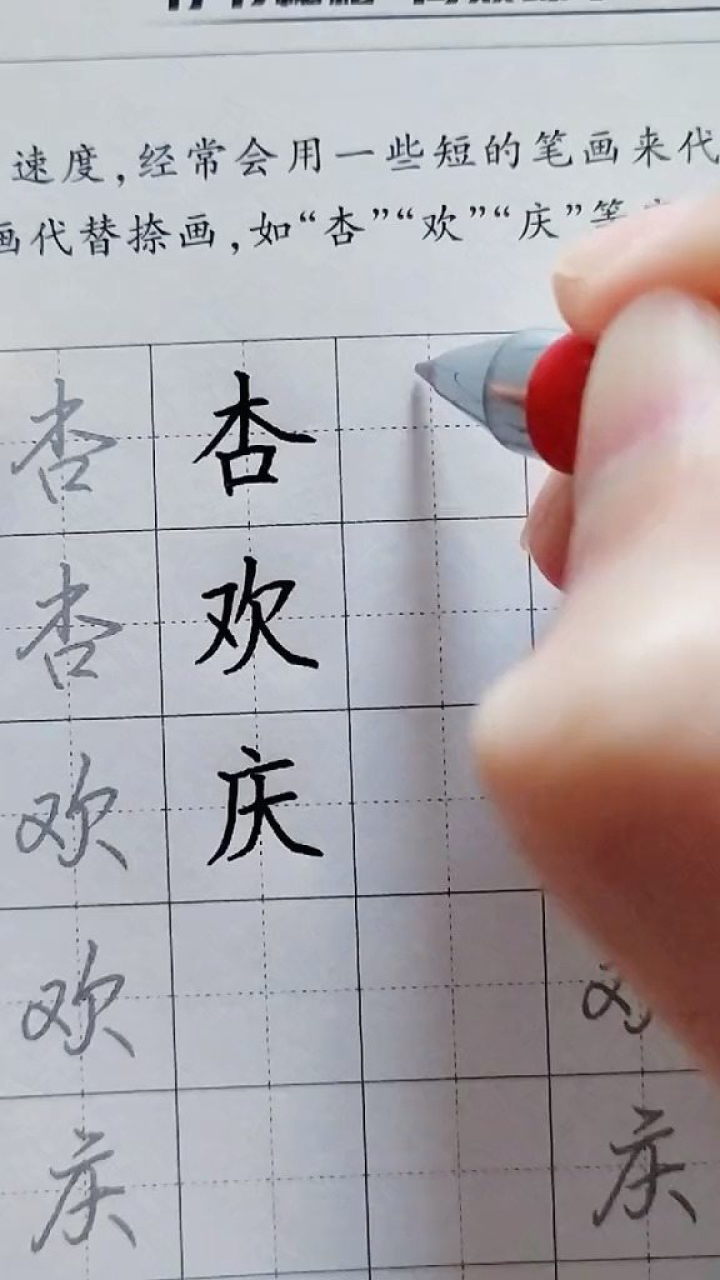 速度，经常会用一些短的笔画来代
画代替捺画，如“杏”“欢”“庆”等
杏 杏
杏 欢
欢 庆
欢 欢
庆 庆